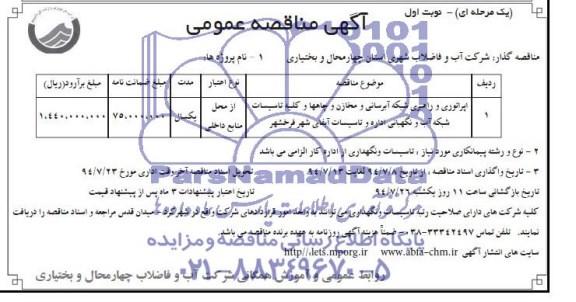 (یک مرحله ای) – نوبت اول
آگهی مناقصه عمومی
مناقصه گذار: شرکت آب و فاضلاب شهری استان چهارمحال و بختیاری ۱ - نام پروژه ها:
ردیف موضوع مناقصه نوع اعتبار مدت مبلغ ضمانت نامه مبلغ برآورد(ریال)
۱ اپراتوری و راهبری شبکه آبرسانی و مخازن و چاهها و کلیه تاسیسات شبکه آب و نگهبانی اداره و تاسیسات آبفای شهر فرخشهر از محل منابع داخلی یکسال ۷۵,۰۰۰,۰۰۰ ۱,۴۴۰,۰۰۰,۰۰۰
۲ - نوع و رشته پیمانکاری مورد نیاز ، تاسیسات ونگهداری از اداره کار الزامی می باشد
۳ - تاریخ واگذاری اسناد مناقصه ، از تاریخ ۹۴/۷/۸ لغایت ۹۴/۷/۱۳ تحویل اسناد مناقصه آخر وقت اداری مورخ ۹۴/۷/۲۳
تاریخ بازگشائی ساعت ۱۱ روز یکشنبه ۹۴/۷/۲۶ تاریخ اعتبار پیشنهادات ۳ ماه پس از پیشنهاد قیمت
کلیه شرکت های دارای صلاحیت رتبه تاسیسات ونگهداری می توانند به واحد امور قراردادهای شرکت واقع در شهرکرد - میدان قدس مراجعه و اسناد مناقصه را دریافت
نمایند. تلفن تماس ۳۳۳۴۲۴۹۷-۰۳۸ ضمناً هزینه آگهی روزنامه به عهده برنده مناقصه می باشد.
سایت های انتشار آگهی www.abfa-chm.ir http://iets.mporg.ir
روابط عمومی و آموزش همگانی شرکت آب و فاضلاب چهارمحال و بختیاری
ParsNamadData
پایگاه اطلاع رسانی مناقصه و مزایده
۰۲۱-۸۸۳۴۹۶۷۰-۵